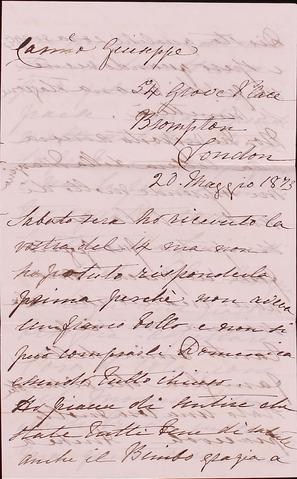 Carmo Giuseppe
54 Grove Place
Brompton
London
20. Maggio 1875
Sabato sera ho ricevuto la
vostra del 4 ma non
ho potuto risponderla
prima perchè non
e non si
può comprarli Domenica
essendo tutto chiuso
Ho piacere di sentire che
state tutti bene di salute
anche il Bimbo grazia a